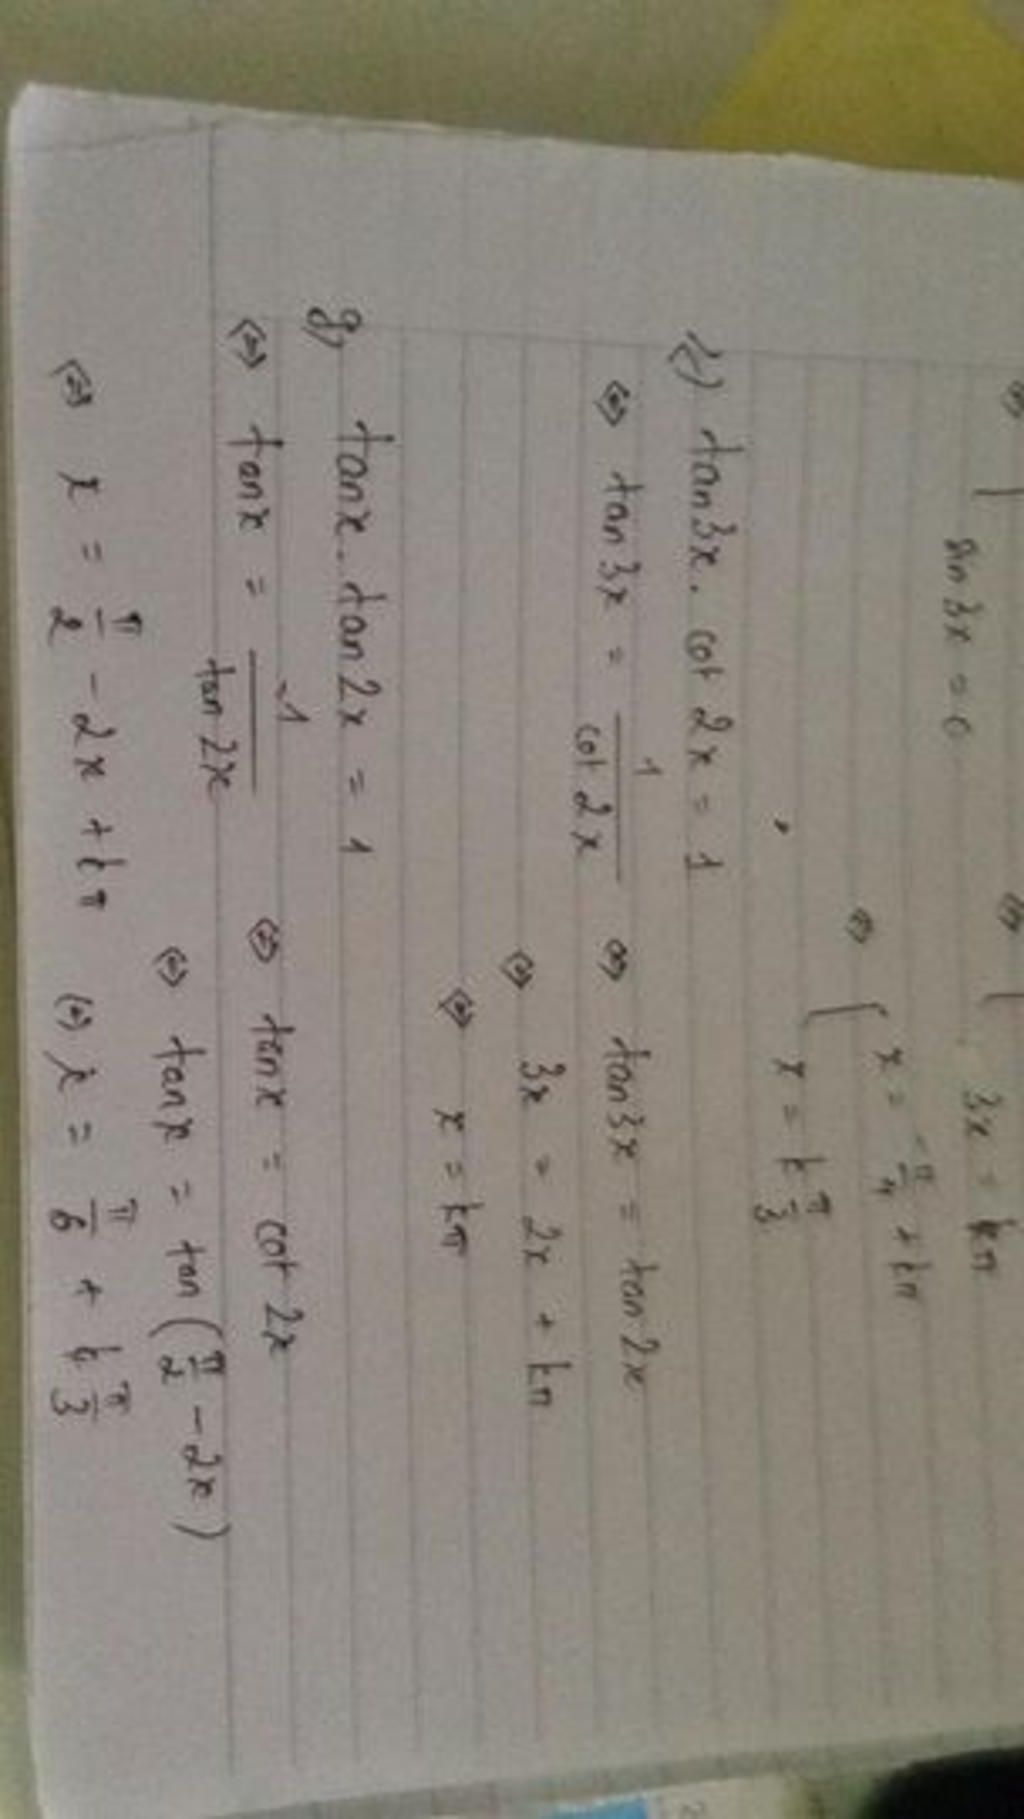 sin 3x = 0
3x = kπ
x = -π/4 + kπ
x = k π/3
f) tan3x. cot 2x = 1
⇔ tan 3x = 1/cot 2x ⇔ tan3x = tan 2x
⇔ 3x = 2x + kπ
⇔ x = kπ
g) tanx. tan2x = 1
⇔ tanx = 1/tan 2x ⇔ tanx = cot 2x
⇔ tanx = tan (π/2 - 2x)
⇔ x = π/2 - 2x + kπ ⇔ x = π/6 + k π/3